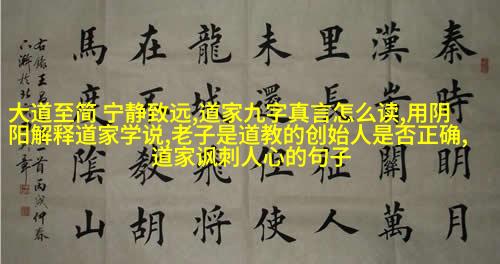 大道至简 宁静致远,道家九字真言怎么读,用阴
阳解释道家学说,老子是道教的创始人是否正确,
道家讽刺人心的句子
秦時明月
漢萬
里長人
未還使
龍城飛將
在教胡
馬度陰山
首丙戌仲春